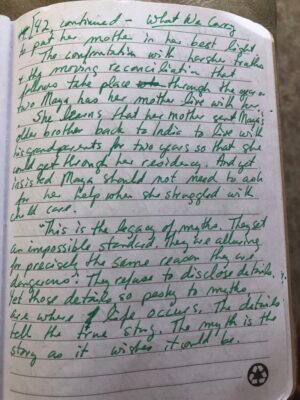 #142 continued - What We Carry
to put her mother in her best light
The confrontation with harsher truths
& the moving reconciliation that
follows take place through the year or
two Maya has her mother live with her.
She learns that her mother sent Maya's
older brother back to India to live with
his grandparents for two years so that she
could get through her residency. And yet
insisted Maya should not need to ask
for her help when she struggled with
child care.
"This is the legacy of myths. They set
an impossible standard. They're alluring
for precisely the same reason they are
dangerous: They refuse to disclose details.
Yet those details so pesky to myths
are where life occurs. The details
tell the true story. The myth is the
story as it wishes it could be.